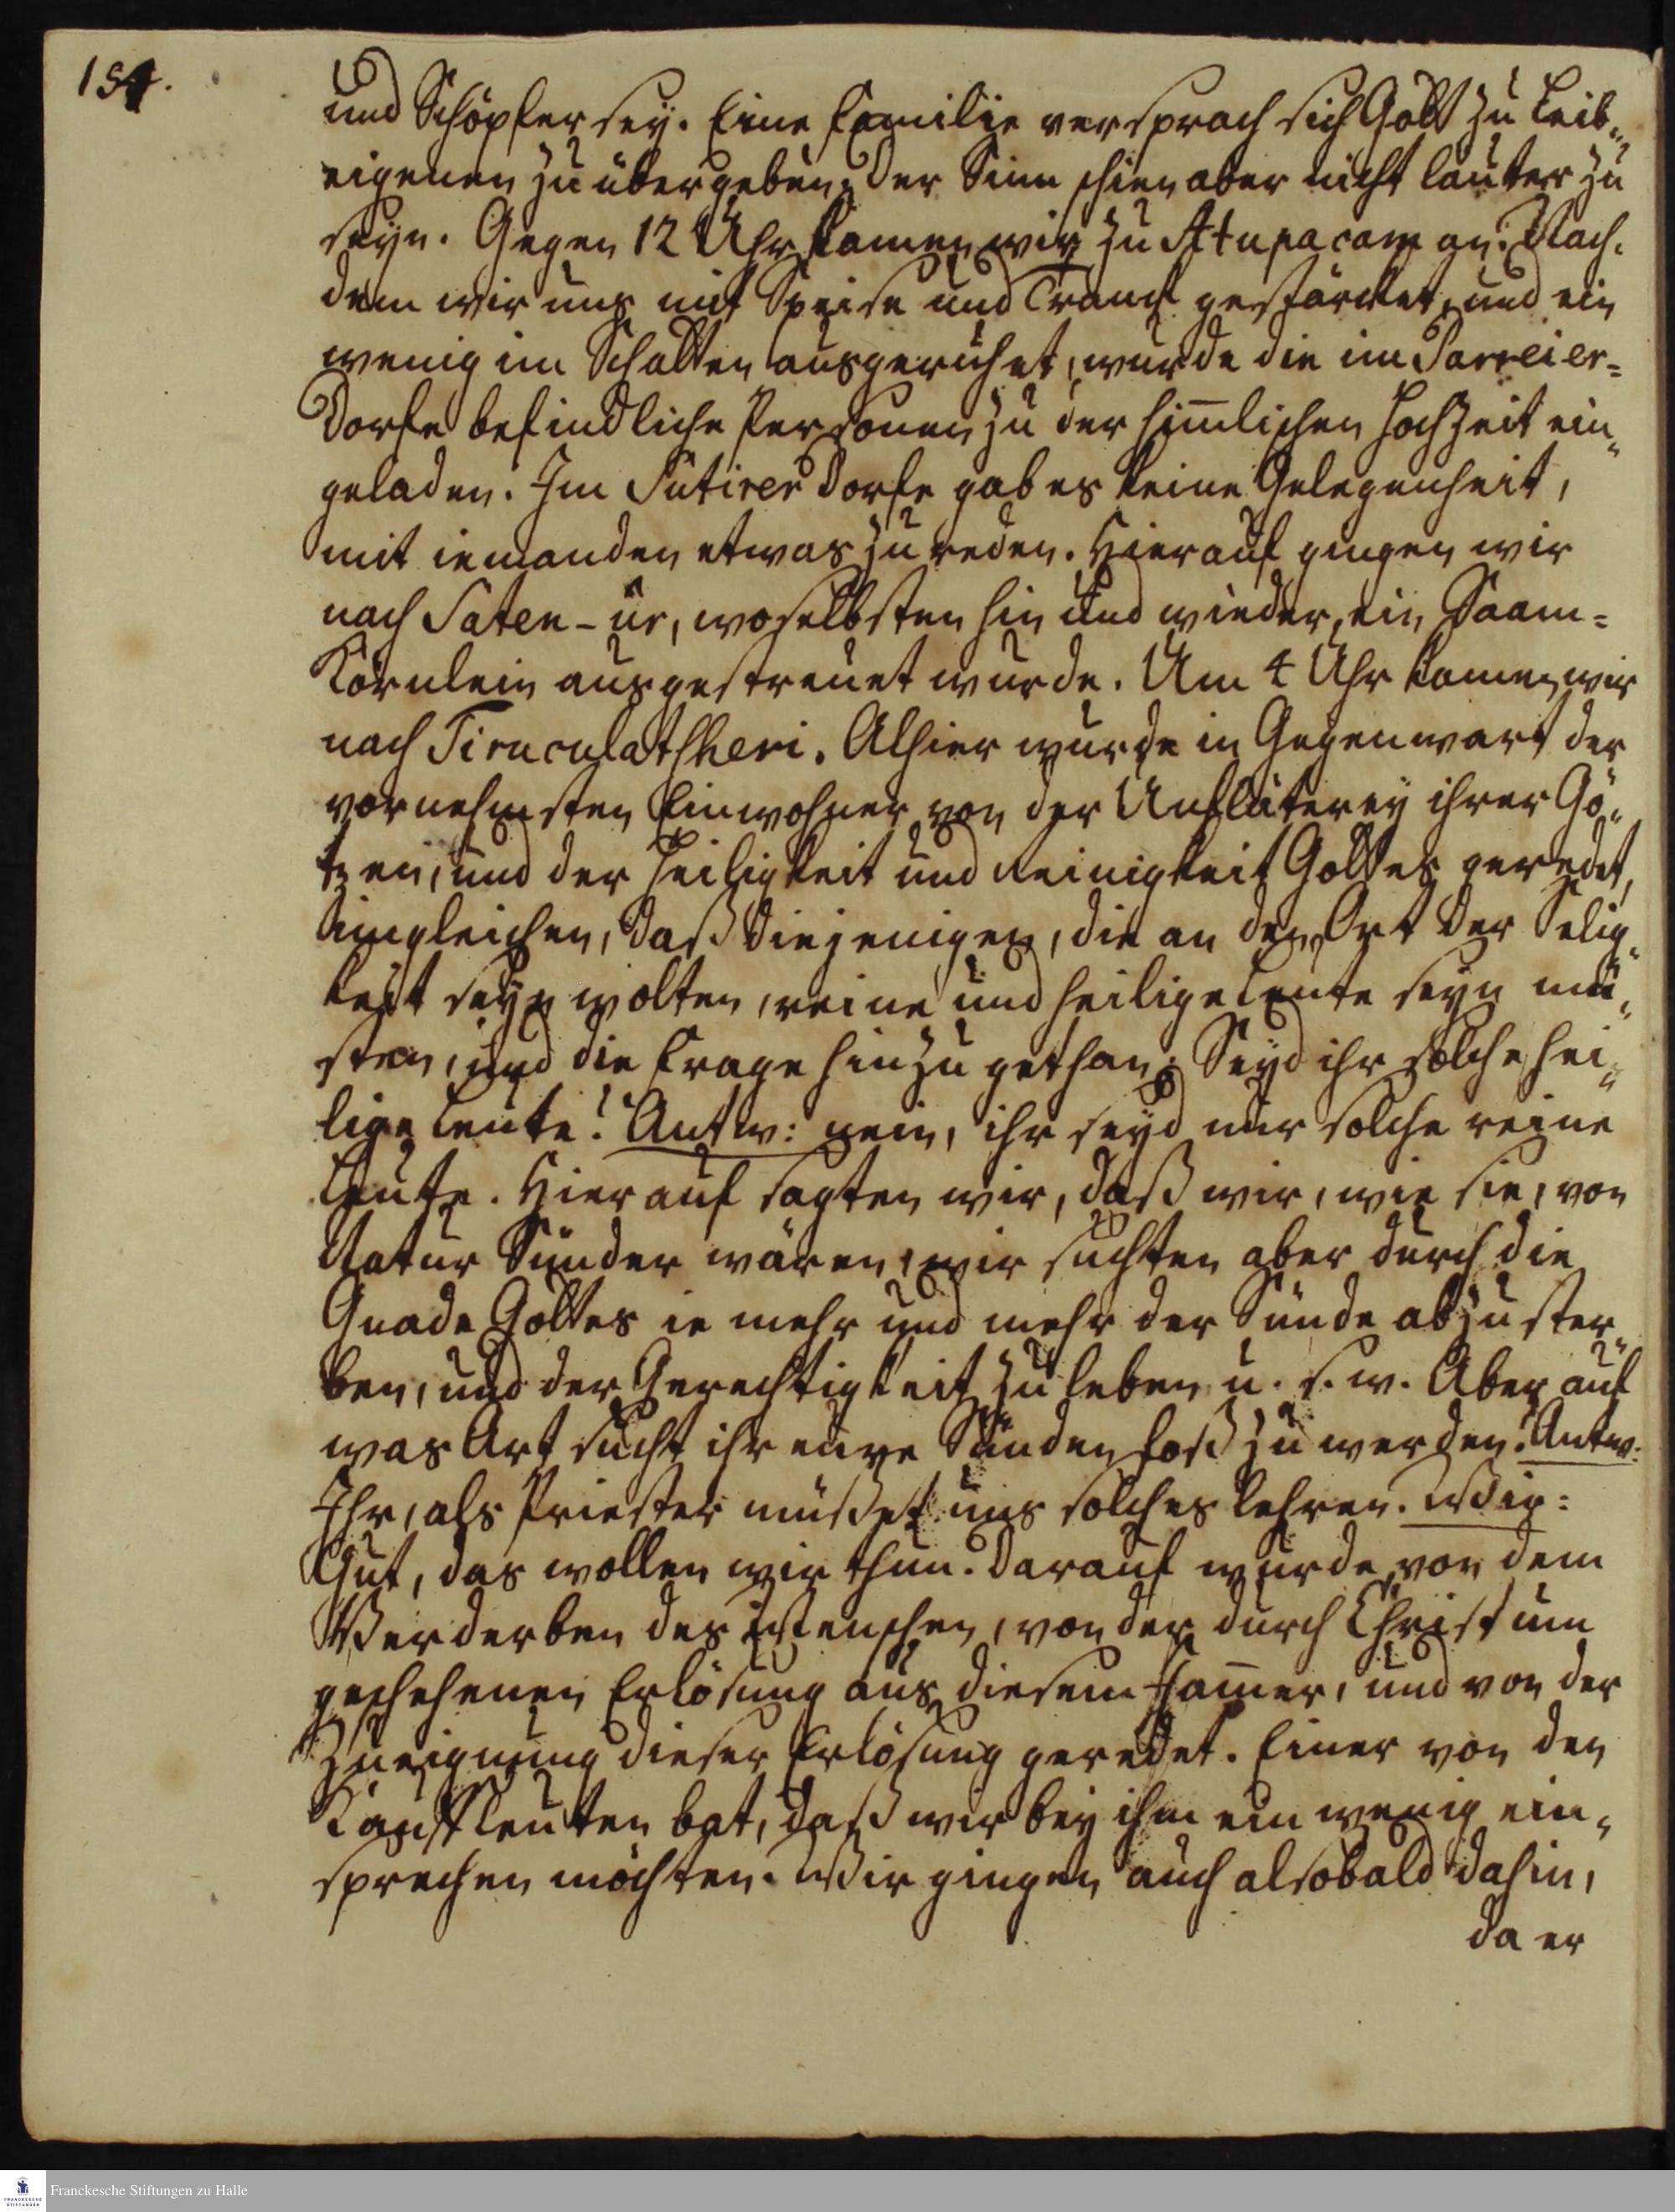 154.
und Schöpfer sey. Eine Familie versprach sich Gott zu Leib„
eigenen zu übergeben; der Sinn schien aber nicht lauter zu
seyn. Gegen 12 Uhr kamen wir zu Atupacam an. Nach„
dem wir uns mit Speise und Tranck gestärcket, und ein
wenig im Schatten ausgeruhet, wurde die im Parreier=
Dorfe befindliche Personen zu der himlischen Hochzeit ein„
geladen. Im Sutirer Dorfe gab es keine Gelegenheit,
mit iemanden etwas zu reden. Hierauf gingen wir
nach Saten-ur, woselbsten hin und wieder, ein Saam=
Körnlein ausgestreuet wurde. Um 4 Uhr kamen wir
nach Tiruculatscheri. Alhier wurde in Gegenwart der
vornehmsten Einwohner von der Unfläterey ihrer Gö„
tzen, und der Heiligkeit und Reinigkeit Gottes geredet,
imgleichen, daß diejenigen, die an dem Ort der Selig„
keit seyn wolten, reine und heilige Leute seyn mü„
sten, und die Frage hinzu gethan: Seyd ihr solche hei„
lige Leute? Antw: nein, ihr seyd nur solche reine
Leute. Hierauf sagten wir, daß wir, wie sie, von
Natur Sünder wären, wir suchten aber durch die
Gnade Gottes ie mehr und mehr der Sünde abzuster„
ben, und der Gerechtigkeit zu leben u. s. w. Aber auf
was Art sucht ihr eure Sünden loß zu werden? Antw:
Ihr, als Priester müßet uns solches lehren. Wir:
Gut, das wollen wir thun. Darauf wurde von dem
Verderben des Menschen, von der durch Christum
geschehenen Erlösung aus diesem Jamer, und von der
Zueignung dieser Erlösung geredet. Einer von den
Kauffleuten bat, daß wir bey ihm ein wenig ein„
sprechen möchten. Wir gingen auch alsobald dahin,
da er
Franckesche Stiftungen zu Halle
FRANCKESCHE
STIFTUNGEN